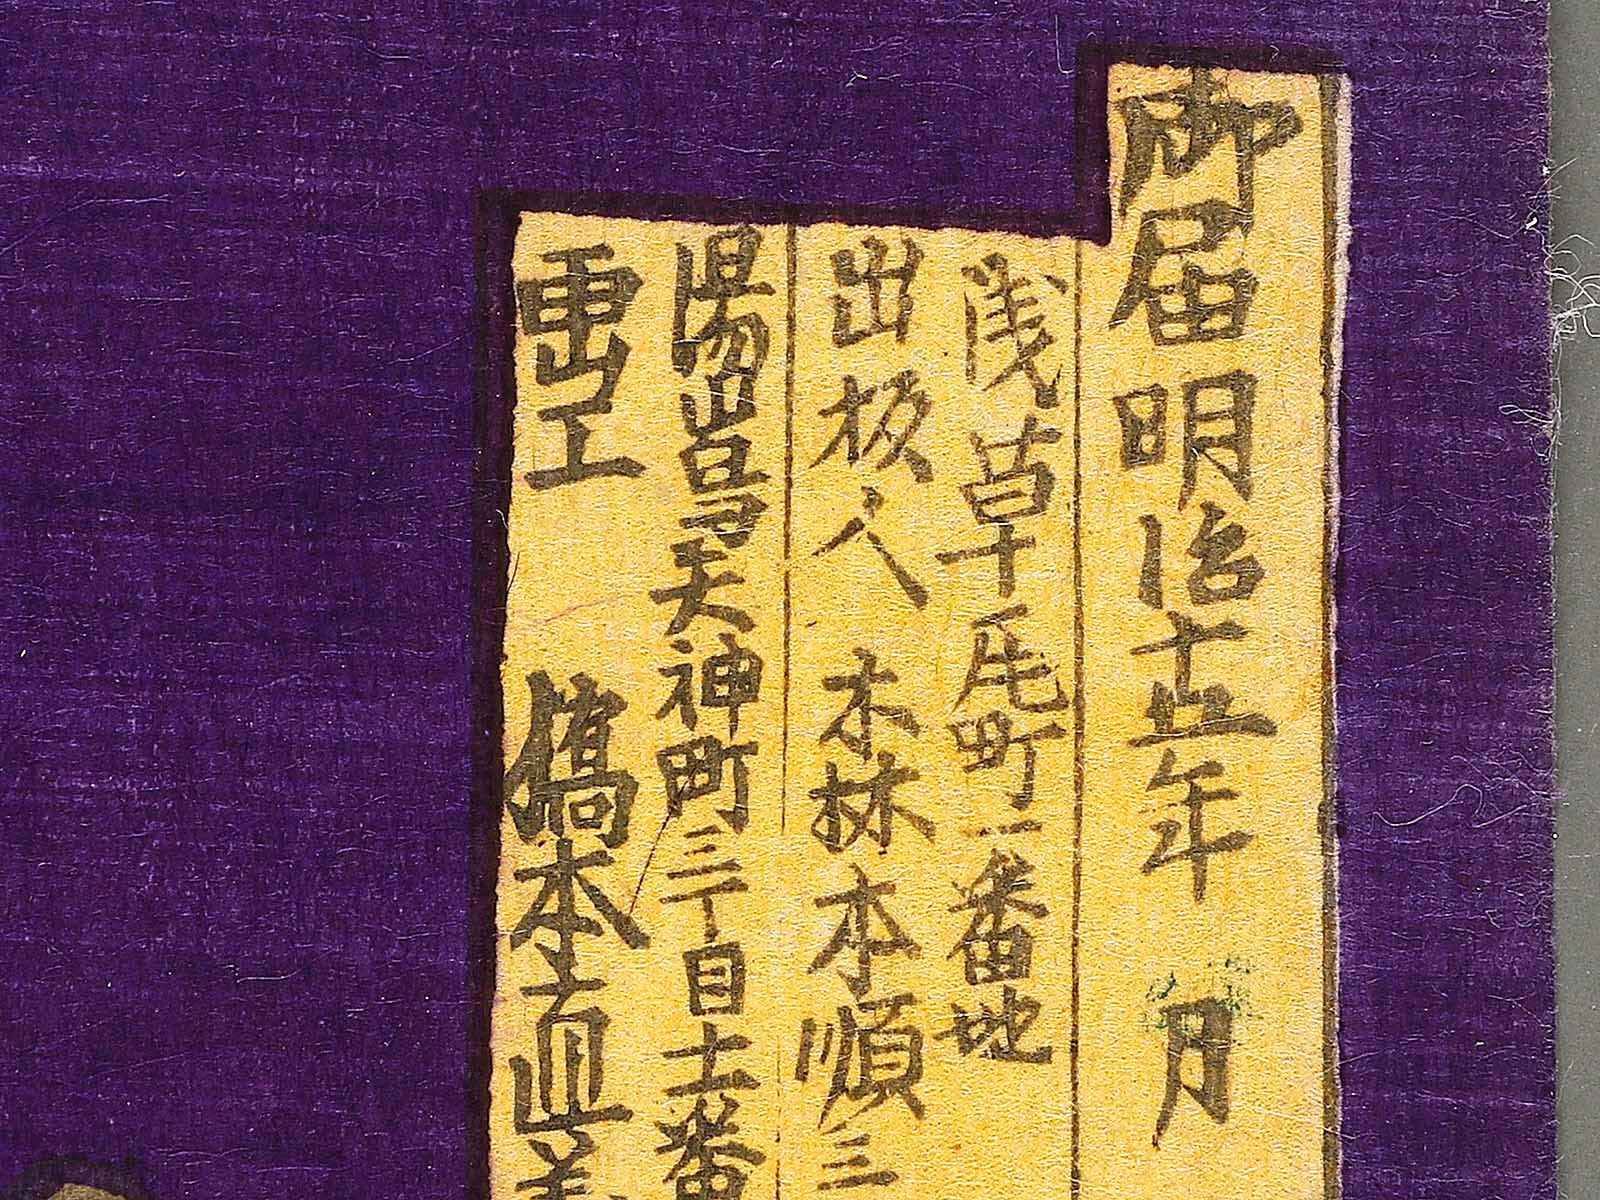 御届明治十五年 月
浅草瓦町一番地
出板人 森本順三
湯嶌天神町三丁目十一番
画工 橋本直義